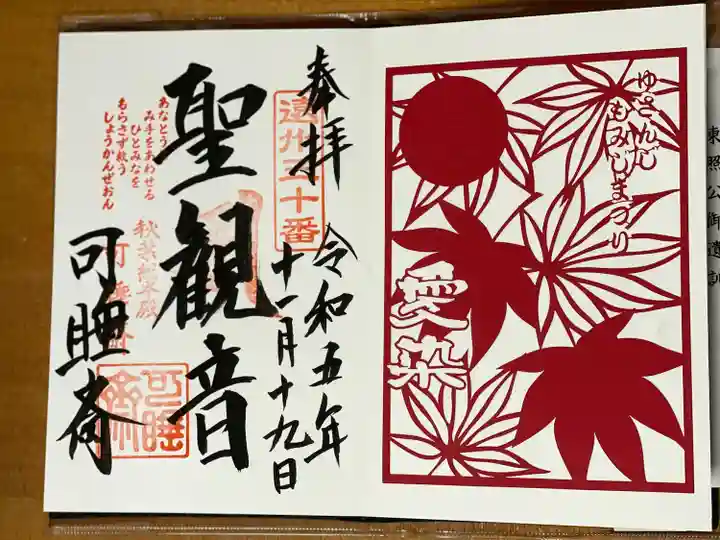 奉拝
遠州三十三番
令和五年
十一月十九日
聖観音
あなとう
み手をあわせる
ひとみなを
もらさず救う
しょうかんぜおん
秋葉總本殿
可睡斎
可睡斎
可睡斎
ゆさんじ
もみじまつり
愛染
東照公御遺訓